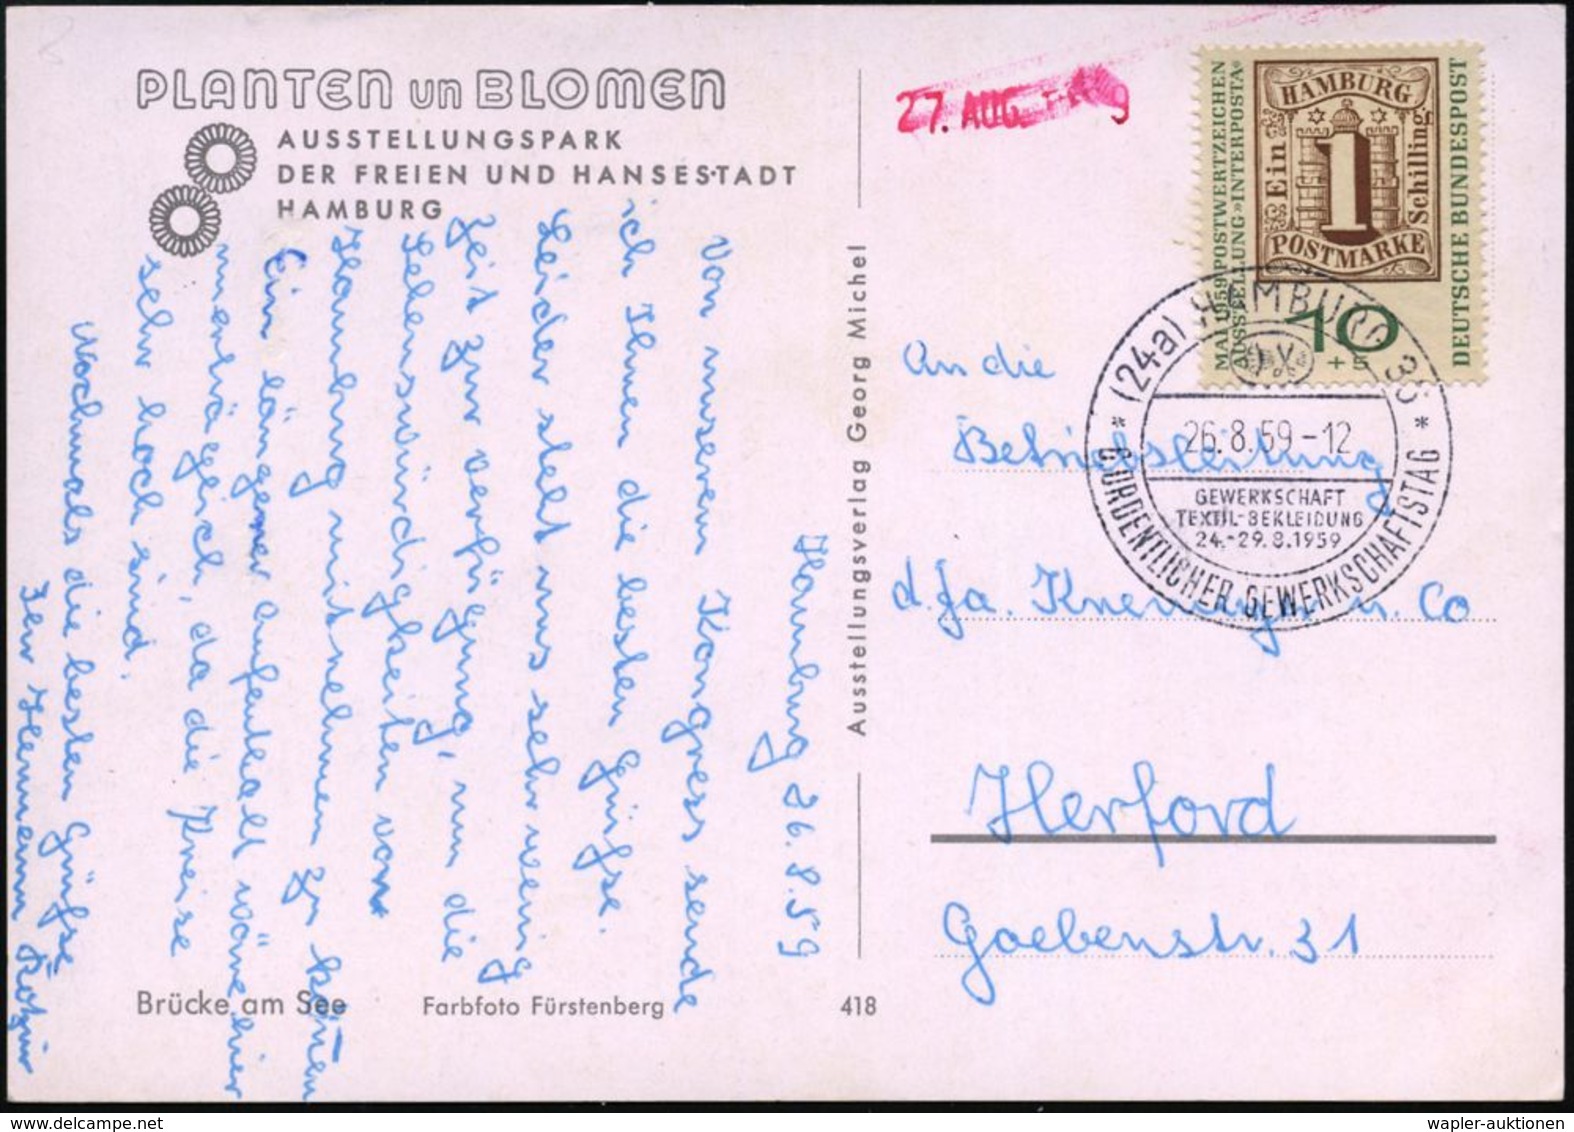 PLANTEN un BLOMEN
AUSSTELLUNGSPARK
DER FREIEN UND HANSESTADT
HAMBURG
Hamburg 26.8.59
Von unserem Kongress sende
ich Ihnen die besten Grüße.
Leider steht uns sehr wenig
Zeit zur verfügung, um die
Sehenswürdigkeiten von
Hamburg mitnehmen zu können
Ein längerer aufenthalt wäre hier
unerträglich, da die Preise
sehr hoch sind.
Nochmals die besten Grüße
Ihr Hermann
Brücke am See
Farbfoto Fürstenberg
418
Ausstellungsverlag Georg Michel
27. AUG. 9
MAI 1959 POSTWERTZEICHEN
AUSSTELLUNG »INTERPOSTA«
HAMBURG
Ein
1
Schilling
POSTMARKE
10
+5
DEUTSCHE BUNDESPOST
(24a) HAMBURG 36
26.8.59-12
GEWERKSCHAFT
TEXTIL-BEKLEIDUNG
24.-29.8.1959
* 6. ORDENTLICHER GEWERKSCHAFTSTAG *
An die
Betriebsleitung
d. Fa. u. Co
Herford
Goebenstr. 31
wapler-auktionen